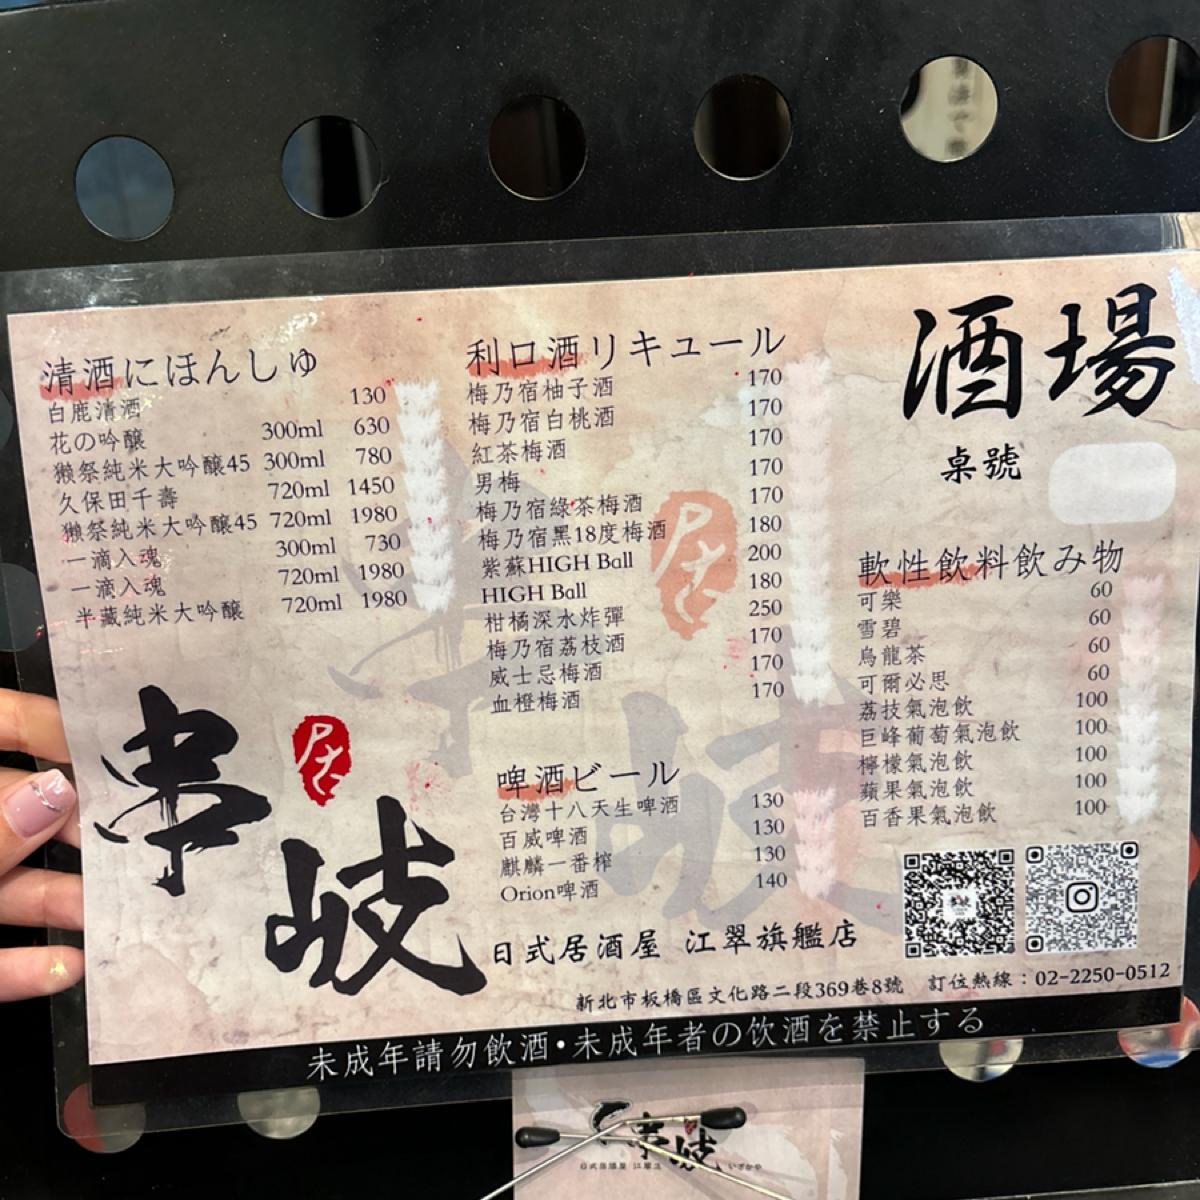 酒場
桌號
清酒にほんしゅ
白鹿清酒 130
花の吟釀 300ml 630
獺祭純米大吟釀45 300ml 780
久保田千壽 720ml 1450
獺祭純米大吟釀45 720ml 1980
一滴入魂 300ml 730
一滴入魂 720ml 1980
半藏純米大吟釀 720ml 1980
利口酒リキュール
梅乃宿柚子酒 170
梅乃宿白桃酒 170
紅茶梅酒 170
男梅 170
梅乃宿綠茶梅酒 170
梅乃宿黑18度梅酒 180
紫蘇HIGH Ball 200
HIGH Ball 180
柑橘深水炸彈 250
梅乃宿荔枝酒 170
威士忌梅酒 170
血橙梅酒 170
啤酒ビール
台灣十八天生啤酒 130
百威啤酒 130
麒麟一番榨 130
Orion啤酒 140
軟性飲料飲み物
可樂 60
雪碧 60
烏龍茶 60
可爾必思 60
荔技氣泡飲 100
巨峰葡萄氣泡飲 100
檸檬氣泡飲 100
蘋果氣泡飲 100
百香果氣泡飲 100
串岐
日式居酒屋 江翠旗艦店
新北市板橋區文化路二段369巷8號 訂位熱線：02-2250-0512
未成年請勿飲酒・未成年者の饮酒を禁止する
串岐
日式居酒屋 江翠店 いざかや